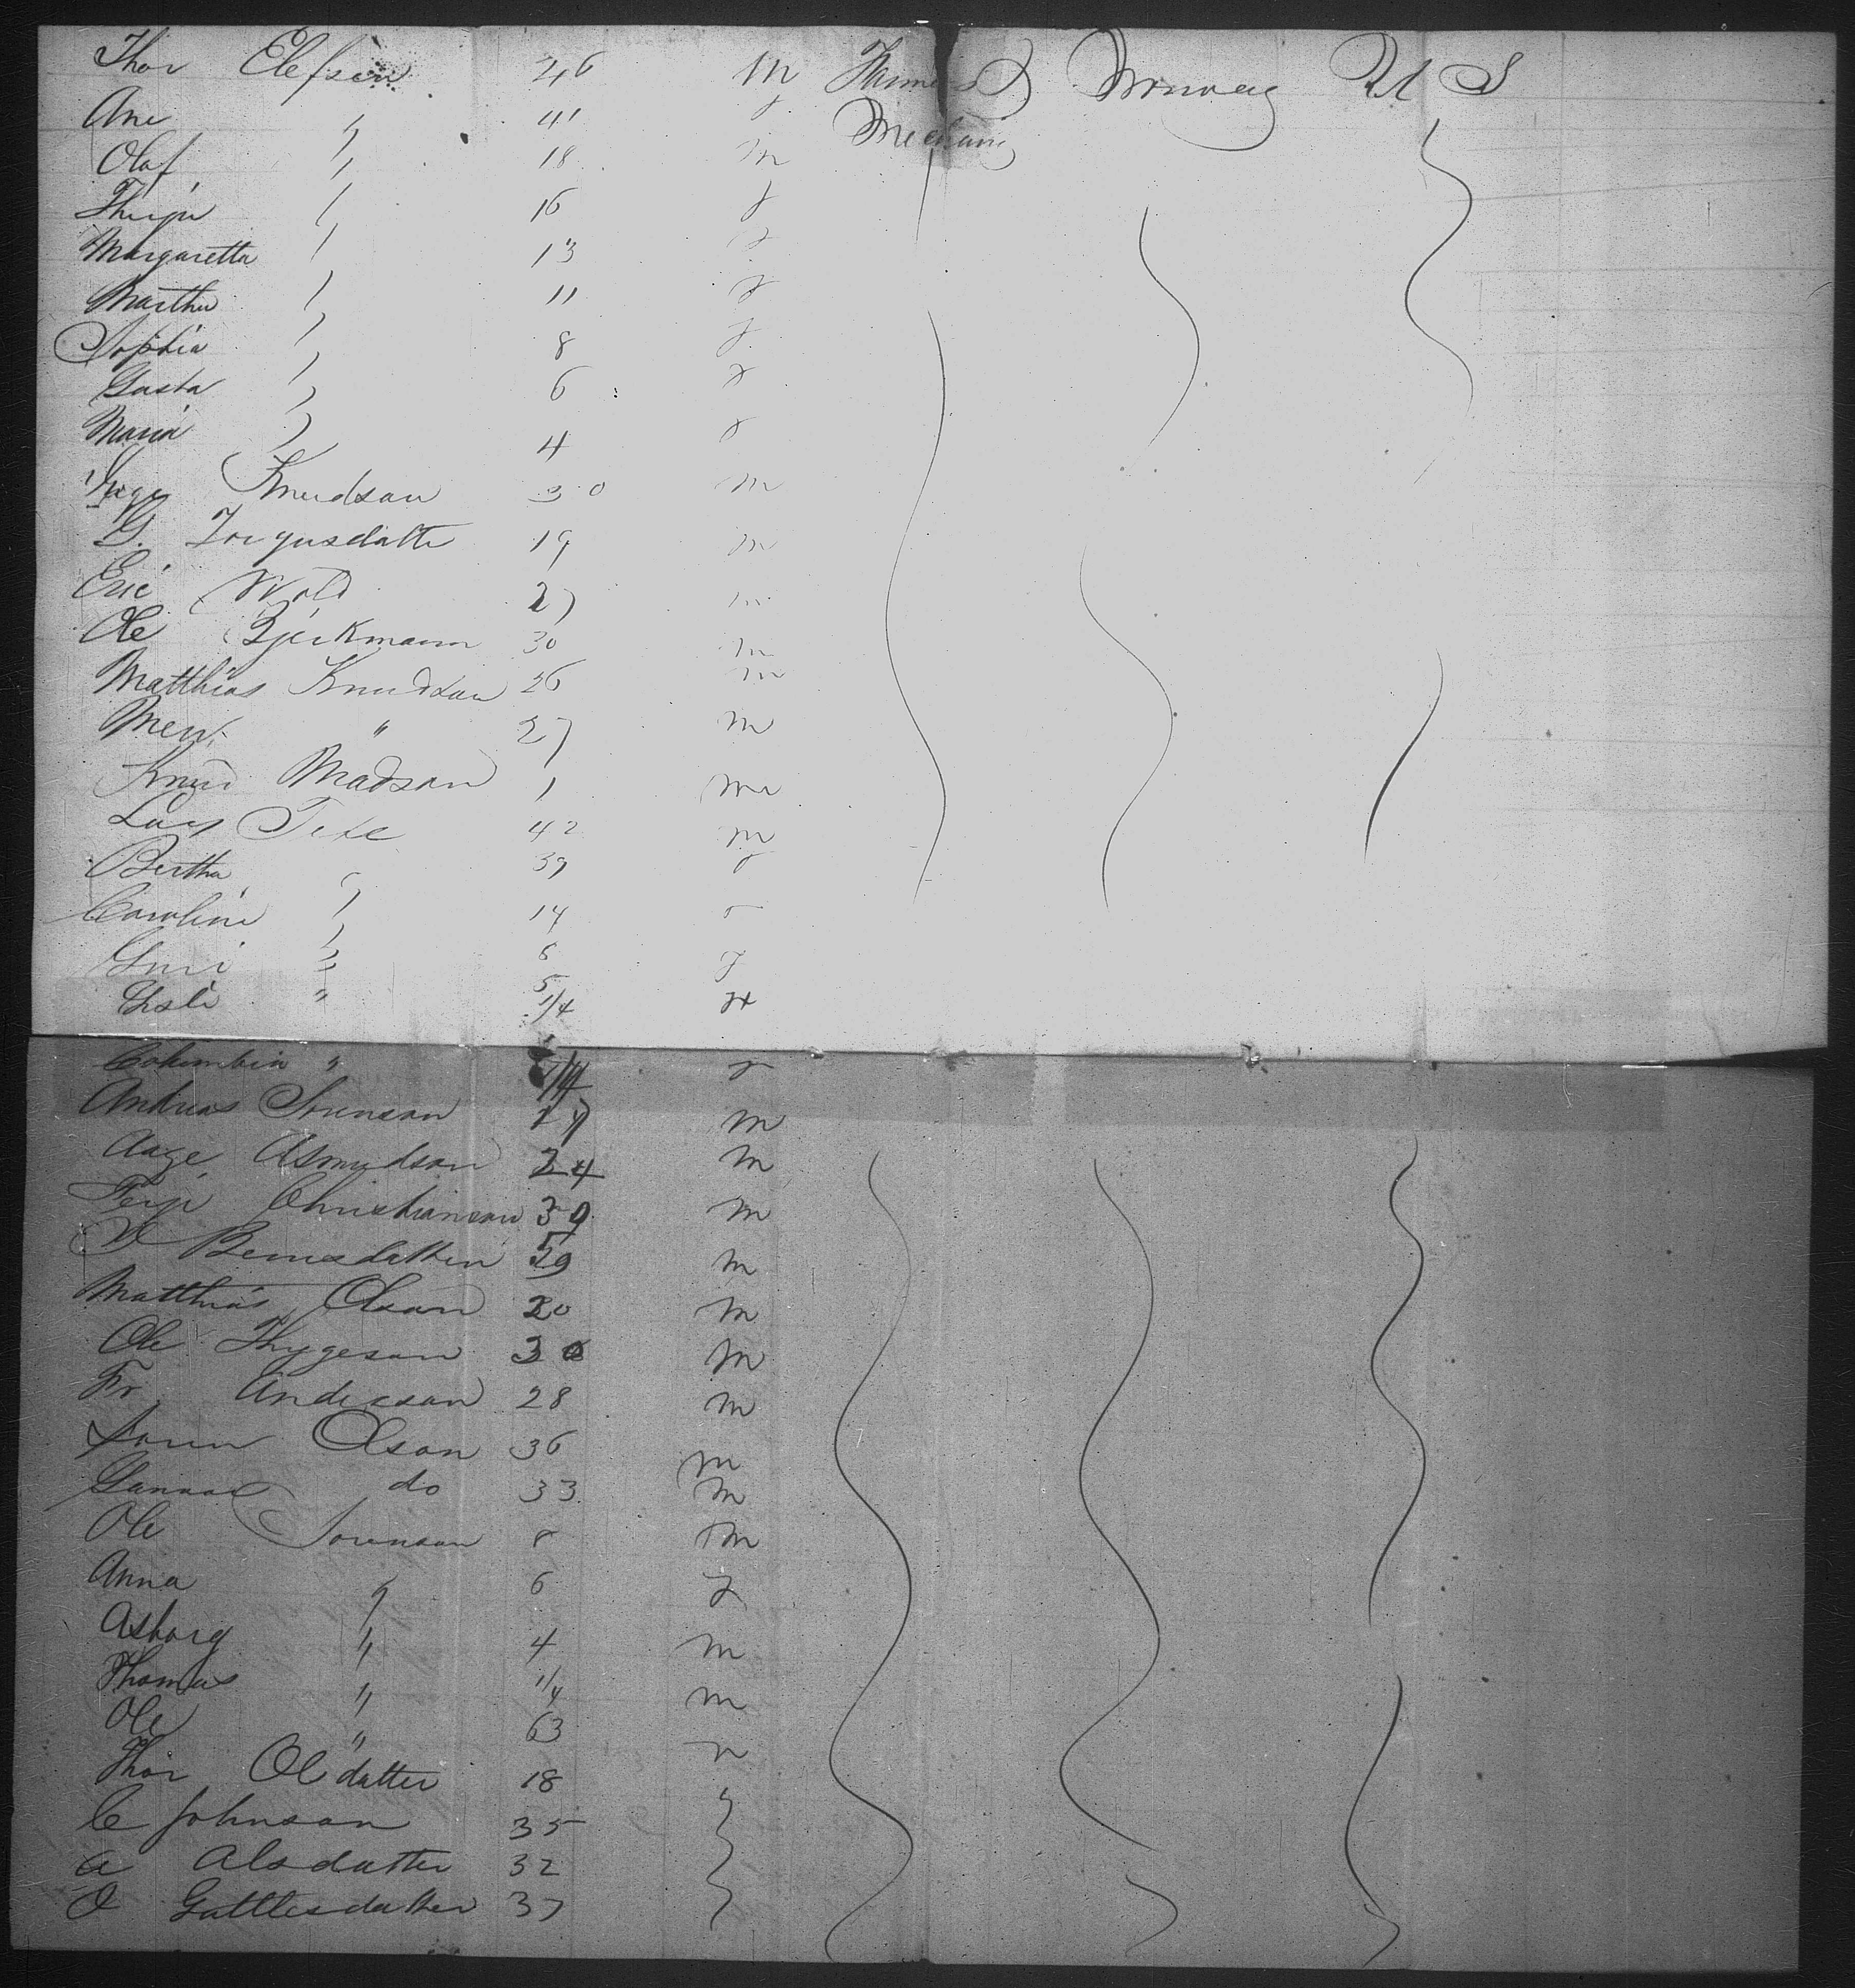 Thor Elefsen 46 m Farmers & Norway U S
Ane " 41 f Mechanic
Olaf " 18 m
Thurje " 16 f
Margaretta " 13 f
Martha " 11 f
Sophia " 8 f
Gusta " 6 f
Maria " 4 f
Knudson 30 m
G. Torgusdatte 19 m
Eric Wold 27 m
Ole Bjerkmann 30 m
Matthias Knudson 26 m
Men " 27 m
Knud Madson 1 m
Lars Tete 42 m
Bertha " 39 f
Caroline " 14 f
Guri " 8 f
" 1/4
Columbia " 1/4 f
Andreas Sorenson 27 m
Aage Asmudson 24 m
Terje Christianson 30 m
Bernsdatten 59 m
Matthias Olson 20 m
Ole Thygeson 30 m
Fr. Anderson 28 m
Soren Olson 36 m
Gunnar do 33 m
Ole Sorenson 8 m
Anna " 6 f
Asborg " 4 m
Thomas " 1/4 m
Ole " 63 m
Thor Ol datter 18 "
C Johnson 35 "
A Alsdatter 32 "
O Gattlesdatter 37 "